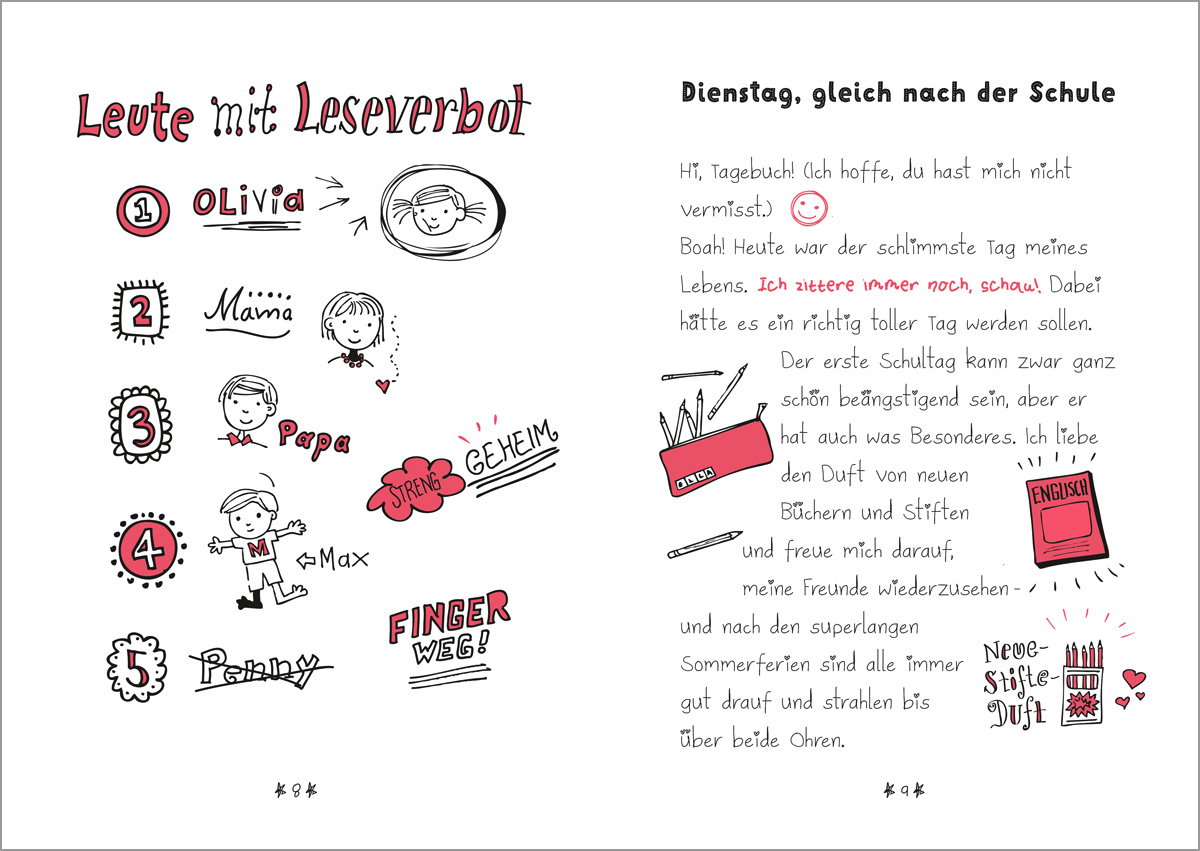 Leute mit Leseverbot
1 OLiViA
2 Mama
3 Papa
STRENG GEHEIM
4 M Max
FINGER
WEG!
5 Penny
8
Dienstag, gleich nach der Schule
Hi, Tagebuch! (Ich hoffe, du hast mich nicht
vermisst.)
Boah! Heute war der schlimmste Tag meines
Lebens. Ich zittere immer noch, schau! Dabei
hätte es ein richtig toller Tag werden sollen.
Der erste Schultag kann zwar ganz
schön beängstigend sein, aber er
hat auch was Besonderes. Ich liebe
den Duft von neuen
Büchern und Stiften
und freue mich darauf,
meine Freunde wiederzusehen –
und nach den superlangen
Sommerferien sind alle immer
gut drauf und strahlen bis
über beide Ohren.
ELLA
ENGLISCH
Neue-
Stifte-
Duft
9